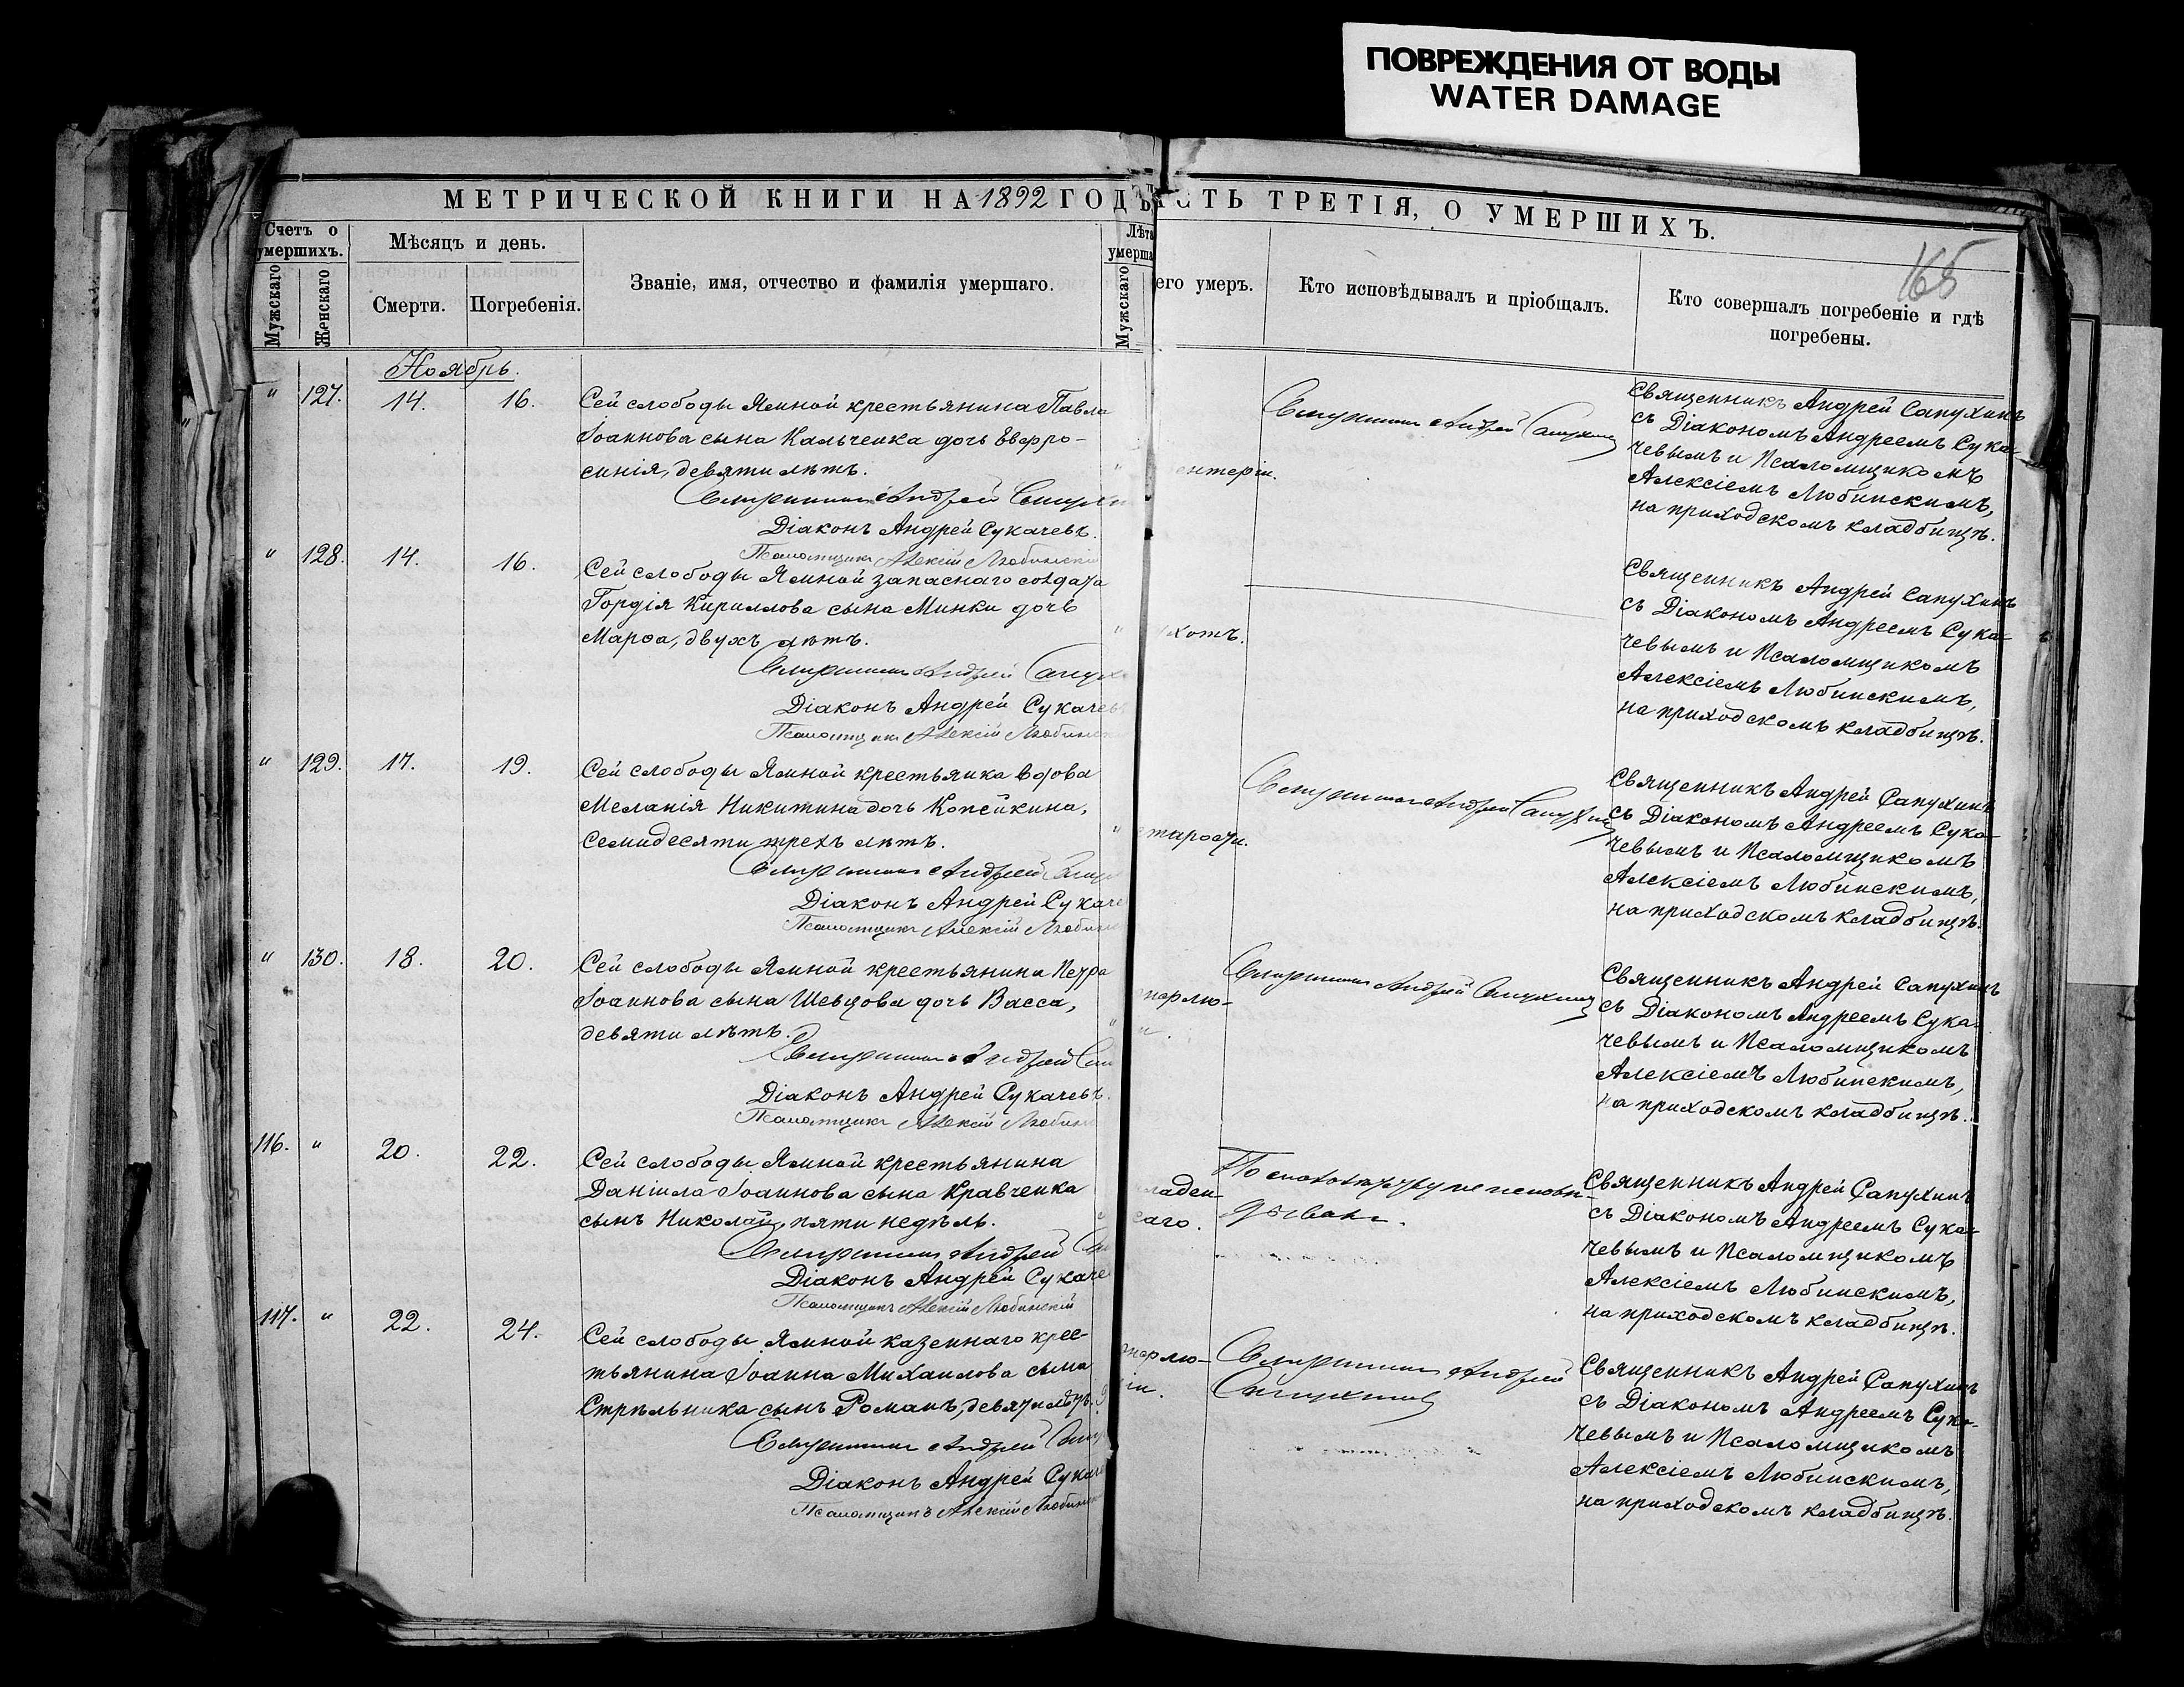 ПОВРЕЖДЕНИЯ ОТ ВОДЫ
WATER DAMAGE
МЕТРИЧЕСКОЙ КНИГИ НА 1892 ГОДЪ
СТЬ ТРЕТІЯ, О УМЕРШИХЪ.
165
Счетъ о умершихъ.
Мужскаго
Женскаго
Мѣсяцъ и день.
Смерти.
Погребенія.
Званіе, имя, отчество и фамилія умершаго.
Лѣта
умерша
Мужскаго
его умеръ.
Кто исповѣдывалъ и пріобщалъ.
Кто совершалъ погребеніе и гдѣ
погребены.
Ноябрь.
" 127. 14. 16.
Сей слободы Ямной крестьянина Павла
Іоаннова сына Кальченка дочь Евфро-
синія, девяти лѣтъ.
Священникъ Андрей
Діаконъ Андрей Сукачевъ.
Псаломщикъ Алексій Любинскій
ентеріи.
Священникъ Андрей Сапухинъ
Священникъ Андрей Сапухинъ
съ Діакономъ Андреемъ Сука-
чевымъ и Псаломщикомъ
Алексіемъ Любинскимъ,
на приходскомъ кладбищѣ.
" 128. 14. 16.
Сей слободы Ямной запаснаго солдата
Гордія Кириллова сына Минки дочь
Марѳа, двухъ лѣтъ.
Священникъ Андрей
Діаконъ Андрей Сукачевъ
Псаломщикъ Алексій
хотъ.
Священникъ Андрей Сапухинъ
съ Діакономъ Андреемъ Сука-
чевымъ и Псаломщикомъ
Алексіемъ Любинскимъ,
на приходскомъ кладбищѣ.
" 129. 17. 19.
Сей слободы Ямной крестьянка вдова
Меланія Никитина дочь Копейкина,
семидесяти трехъ лѣтъ.
Священникъ Андрей
Діаконъ Андрей Сукаче
Псаломщикъ Алексій
старости.
Священникъ Андрей Сапухинъ
Священникъ Андрей Сапухинъ
съ Діакономъ Андреемъ Сука-
чевымъ и Псаломщикомъ
Алексіемъ Любинскимъ,
на приходскомъ кладбищѣ.
" 130. 18. 20.
Сей слободы Ямной крестьянина Петра
Іоаннова сына Шевцова дочь Васса,
девяти лѣтъ.
Священникъ Андрей
Діаконъ Андрей Сукачевъ.
Псаломщикъ Алексій
карлю-
Священникъ Андрей Сапухинъ
Священникъ Андрей Сапухинъ
съ Діакономъ Андреемъ Сука-
чевымъ и Псаломщикомъ
Алексіемъ Любинскимъ,
на приходскомъ кладбищѣ.
116. " 20. 22.
Сей слободы Ямной крестьянина
Даніила Іоаннова сына Кравченка
сынъ Николай, пяти недѣль.
Священникъ Андрей
Діаконъ Андрей Сукаче
Псаломщикъ Алексій Любинскій
ладен-
саго.
По малолѣтству не исповѣ-
дыванъ.
Священникъ Андрей Сапухинъ
съ Діакономъ Андреемъ Сука-
чевымъ и Псаломщикомъ
Алексіемъ Любинскимъ,
на приходскомъ кладбищѣ.
117. " 22. 24.
Сей слободы Ямной казеннаго крес-
тьянина Іоанна Михаилова сына
Стрѣльника сынъ Романъ, девяти лѣтъ.
Священникъ Андрей
Діаконъ Андрей Сукаче
Псаломщикъ Алексій
карлю-
іи.
Священникъ Андрей
Сапухинъ
Священникъ Андрей Сапухинъ
съ Діакономъ Андреемъ Сука-
чевымъ и Псаломщикомъ
Алексіемъ Любинскимъ,
на приходскомъ кладбищѣ.